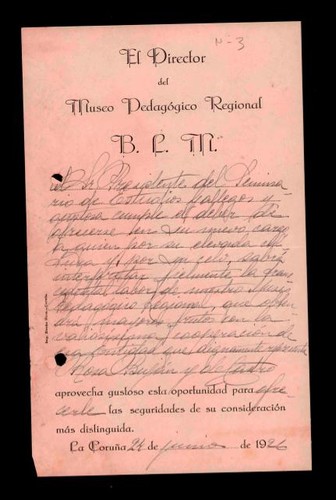 N-3
El Director
del
Museo Pedagógico Regional
B. L. M.
al Sr. Presidente del Semina
rio de Estudios gallegos y
gustoso cumple el deber de
ofrecerse en su nuevo cargo
a quien por su elevada
y por su celo, sabrá
interpretar fielmente la
labor de nuestro Museo
Pedagógico Regional, que
mayores frutos con la
cooperación de
la entidad que dignamente
Rosa Buján y de Castro
aprovecha gustoso esta oportunidad para ofre
cerle las seguridades de su consideración
más distinguida.
La Coruña 24 de junio de 1926